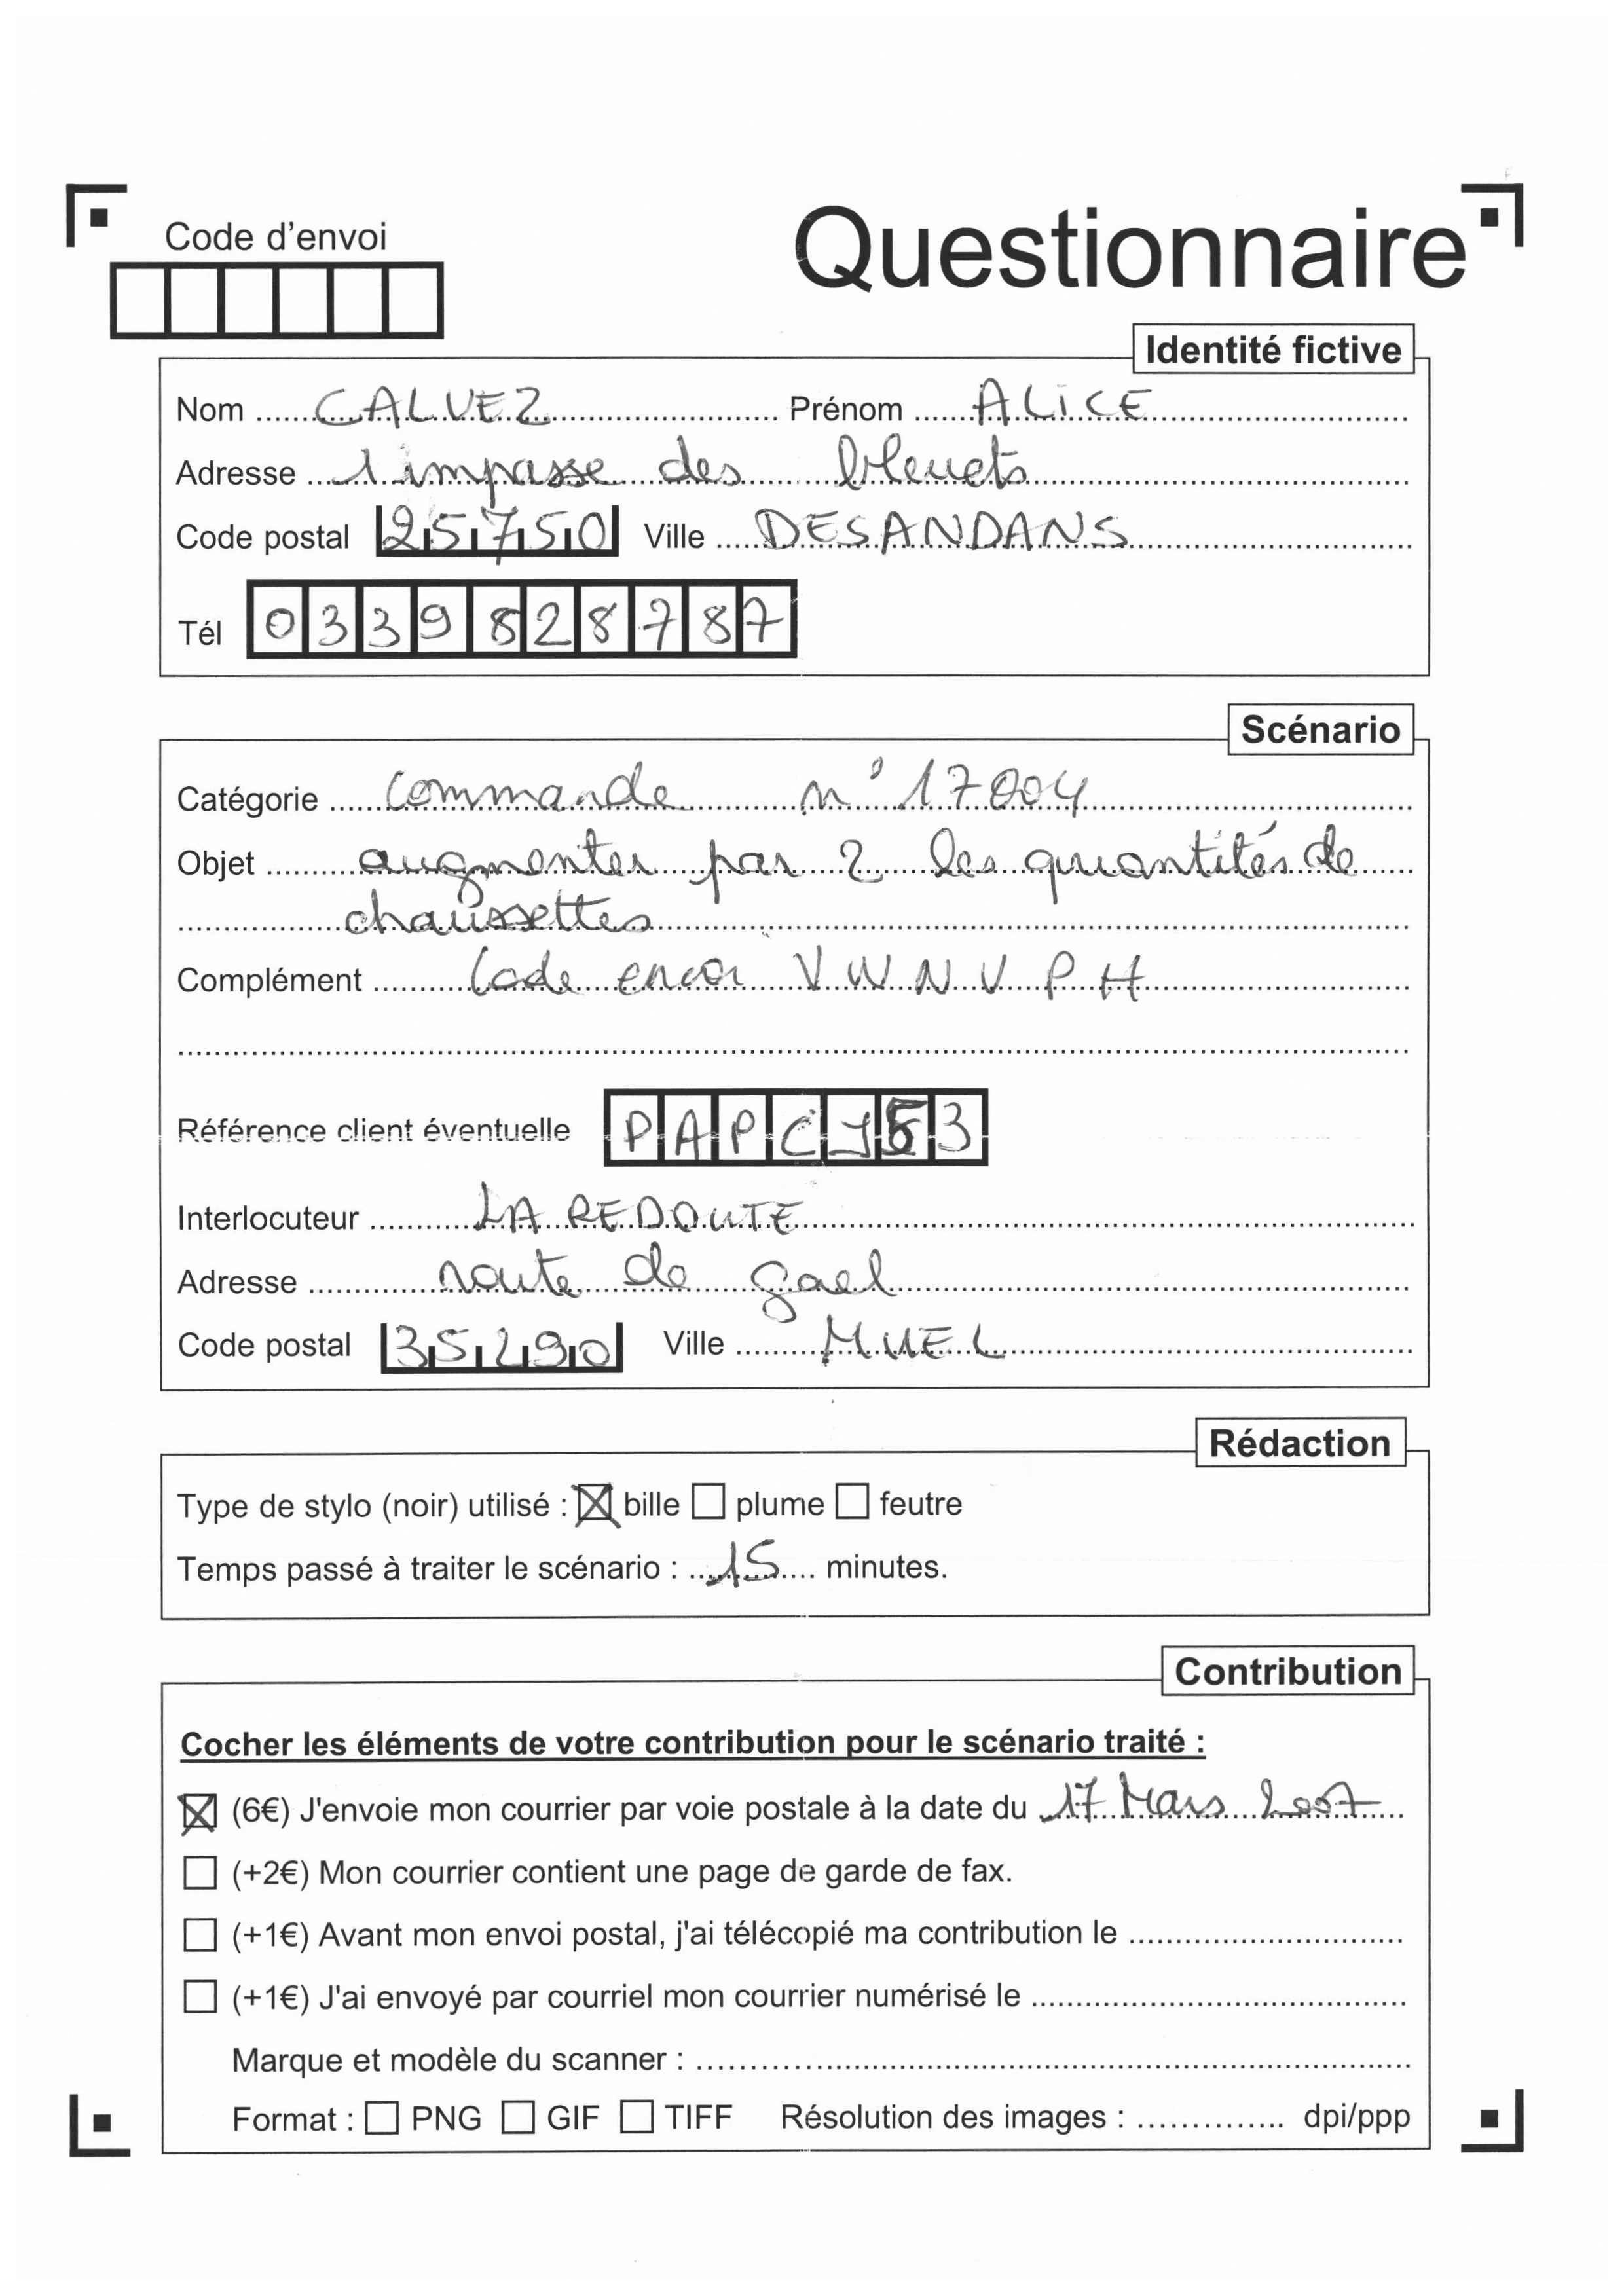 Code d'envoi
Questionnaire
Identité fictive
Nom CALVEZ Prénom ALICE
Adresse 1 impasse des bleuets
Code postal 25750 Ville DESANDANS
Tél 0339828787
Scénario
Catégorie Commande n° 17004
Objet augmenter par 2 les quantités de
chaussettes
Complément Code envoi VWNVPH
Référence client éventuelle PAPCJ53
Interlocuteur LA REDOUTE
Adresse route de gael
Code postal 35290 Ville MUEL
Rédaction
Type de stylo (noir) utilisé : bille plume feutre
Temps passé à traiter le scénario : 15 minutes.
Contribution
Cocher les éléments de votre contribution pour le scénario traité :
(6€) J'envoie mon courrier par voie postale à la date du 17 Mars 2007
(+2€) Mon courrier contient une page de garde de fax.
(+1€) Avant mon envoi postal, j'ai télécopié ma contribution le
(+1€) J'ai envoyé par courriel mon courrier numérisé le
Marque et modèle du scanner :
Format : PNG GIF TIFF Résolution des images : dpi/ppp